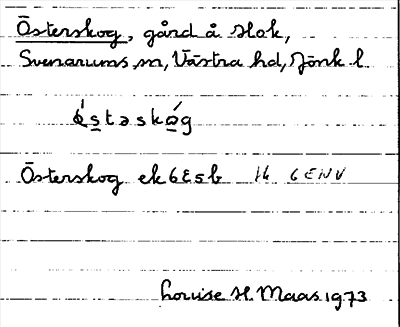 Österskog, gård å Hok,
Svenarums sn, Västra hd, Jönk l.
ǿs̲təskó̲g
Österskog ek 6E5b 7E 6E NV
Louise H. Maas 1973